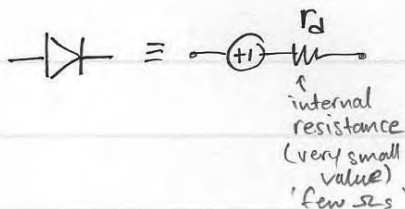 rd
≡
+1
↑
internal
resistance
(very small
value)
'few Ωs'